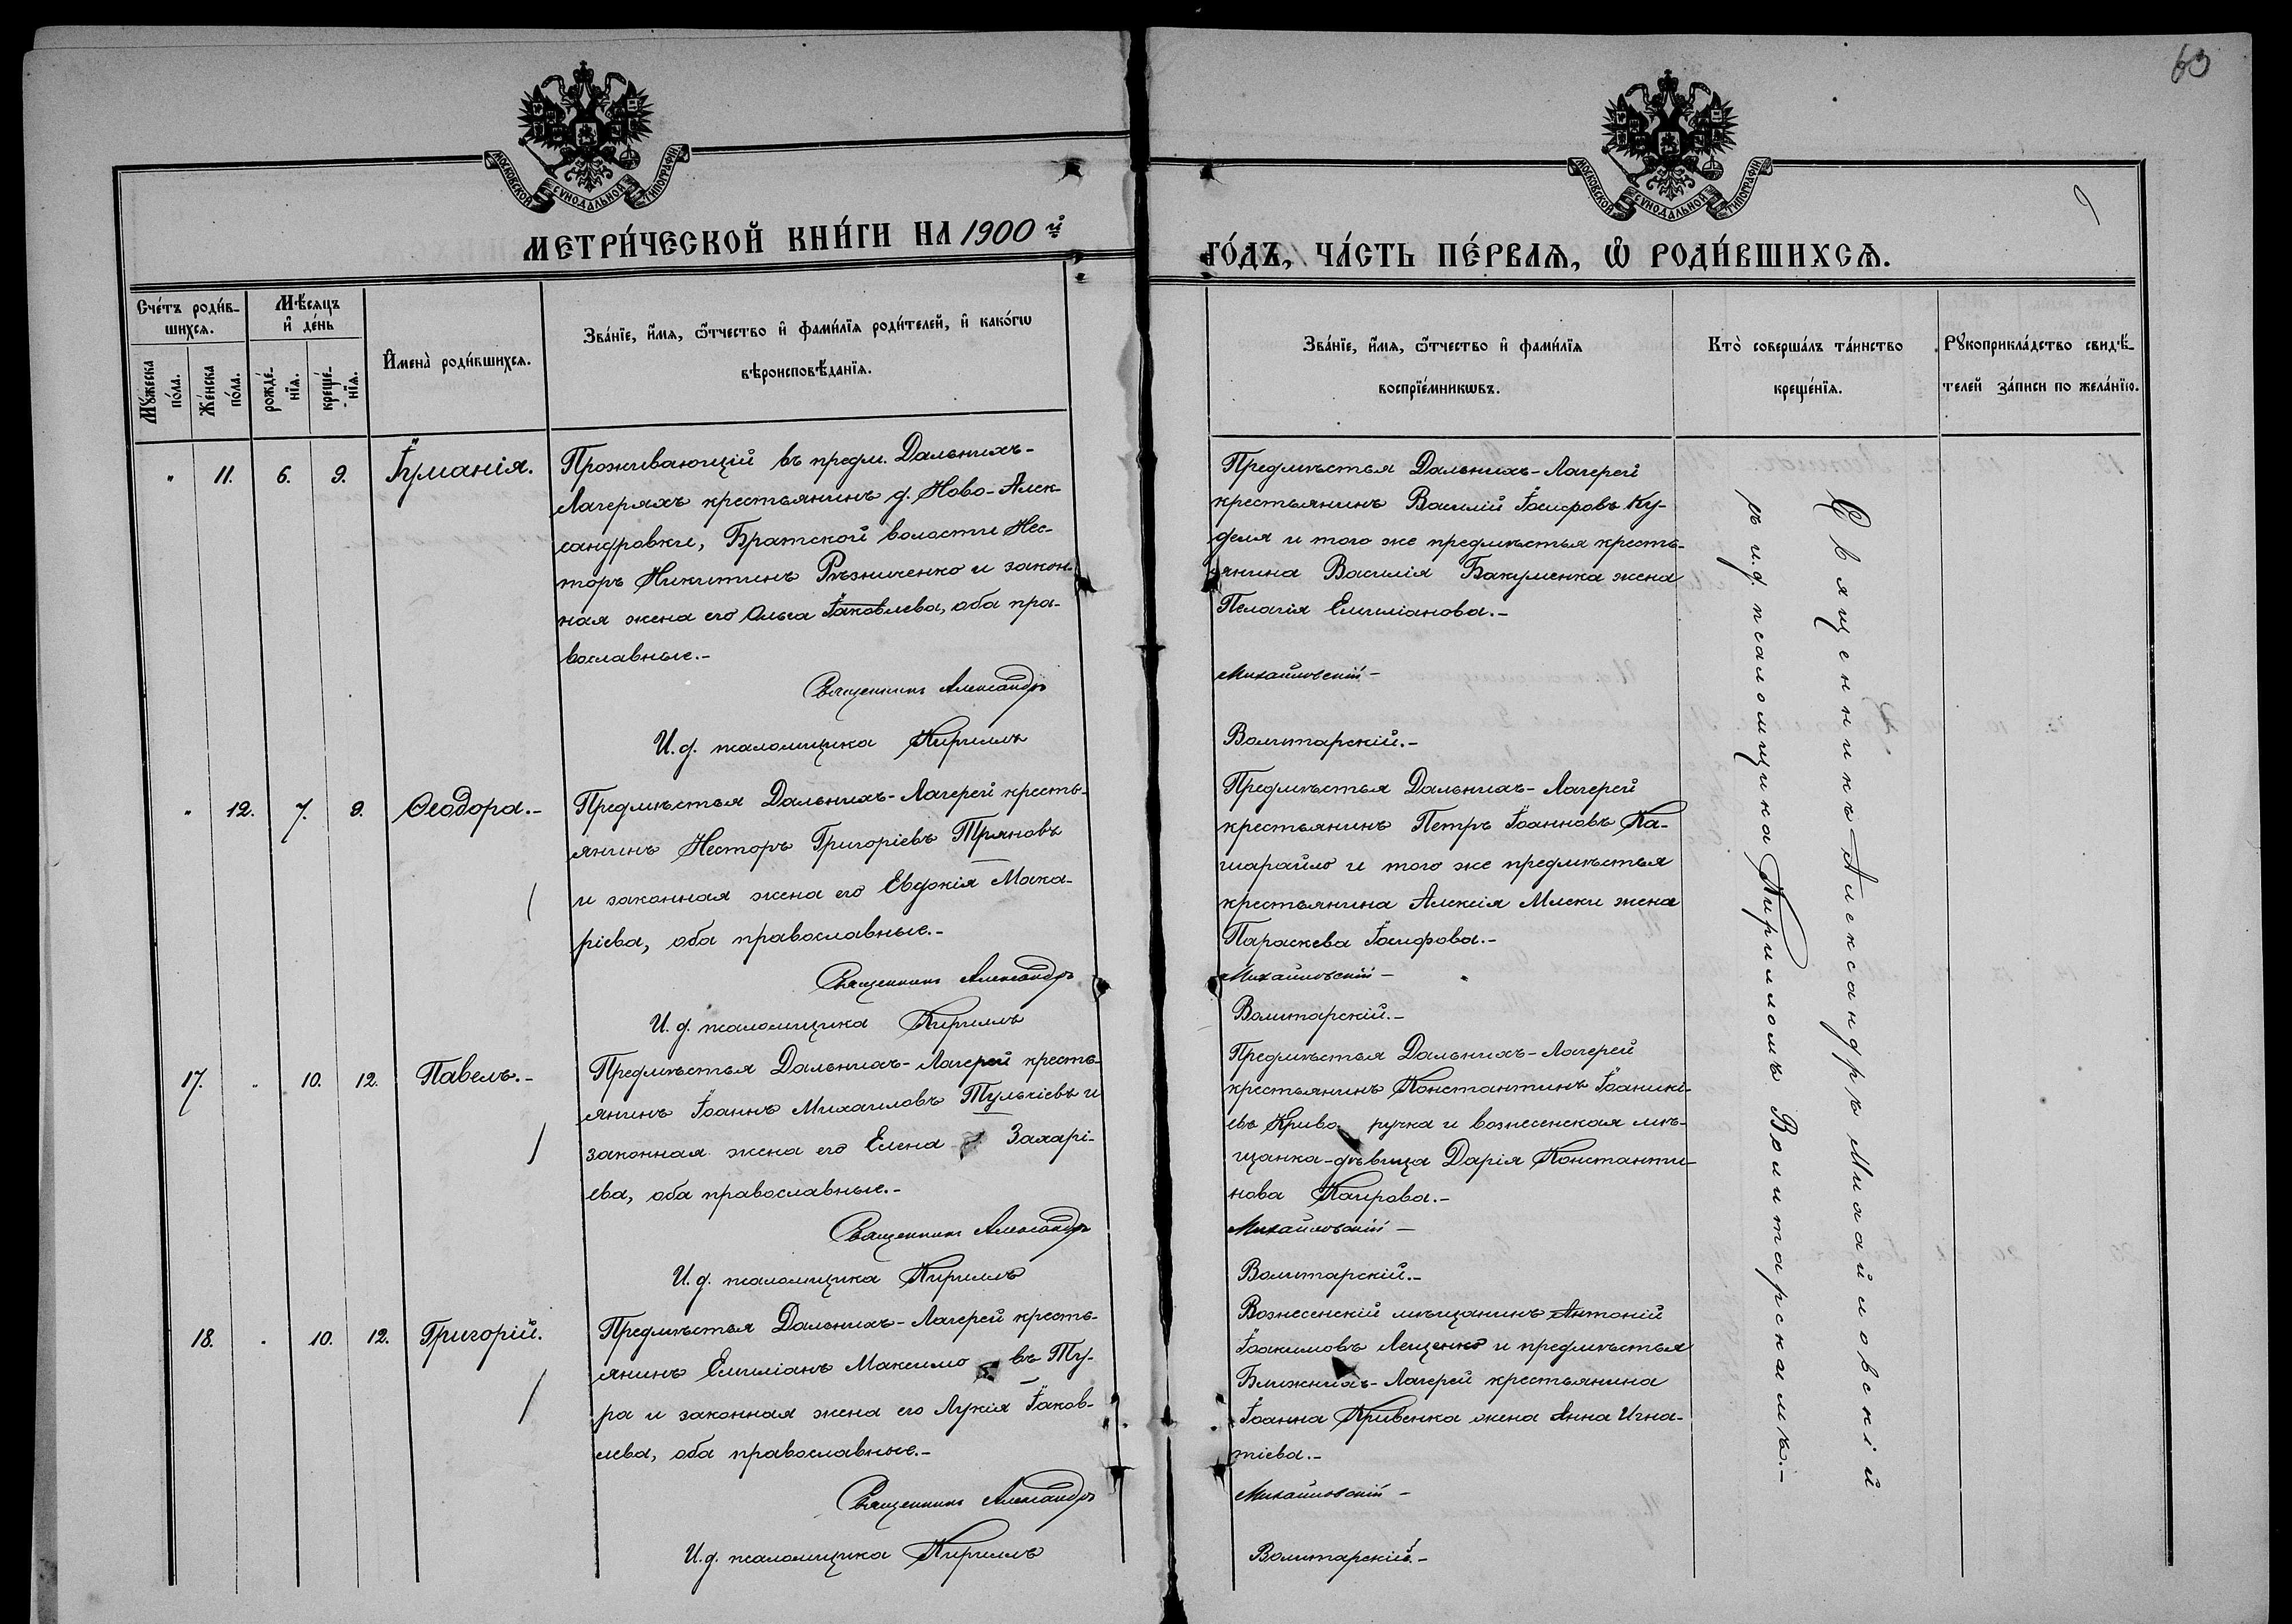 60
МОСКОВСКОЙ СѴНОДАЛЬНОЙ ТИПОГРАФІИ
МОСКОВСКОЙ СѴНОДАЛЬНОЙ ТИПОГРАФІИ
МЕТРИ́ЧЕСКОЙ КНИ́ГИ НА 1900й
ГО́ДЪ, ЧА́СТЬ ПЕ́РВАѦ, Ѡ РОДИ́ВШИХСѦ.
Сче́тъ роди́в-
шихсѧ.
Мꙋжеска по́ла.
Же́нска по́ла.
Мѣ́сѧцъ и де́нь
рожде́-нїѧ.
креще́-нїѧ.
Имена̀ роди́вшихсѧ.
Зва́нїе, и́мѧ, ѻ́тчество и фами́лїѧ роди́телей, и како́гѡ
вѣроисповѣ́данїѧ.
Зва́нїе, и́мѧ, ѻ́тчество и фами́лїѧ
воспрїе́мникѡвъ.
Кто̀ соверша́лъ та́инство
креще́нїѧ.
Рꙋкоприкла́дство свидѣ́-
телей за́писи по жела́нїю.
" 11. 6. 9. Іуманія.
Проживающій въ предм. Дальнихъ-
Лагеряхъ крестьянинъ д. Ново-Алек-
сандровки, Братской волости Нес-
торъ Никитинъ Рѣзниченко и закон-
ная жена его Ольга Іаковлева, оба пра-
вославные.-
Священникъ Александръ
И. д. псаломщика Кириллъ
Предмѣстья Дальнихъ-Лагерей
крестьянинъ Василій Іосифовъ Ку-
деля и того же предмѣстья кресть-
янина Василія Бакуменка жена
Пелагія Емиліанова.-
Михайловскій-
Волитарскій.-
" 12. 7. 9. Ѳеодора.-
Предмѣстья Дальнихъ-Лагерей кресть-
янинъ Несторъ Григоріевъ Тряновъ
и законная жена его Евдокія Мака-
ріева, оба православные.-
Священникъ Александръ
И. д. псаломщика Кириллъ
Предмѣстья Дальнихъ-Лагерей
крестьянинъ Петръ Іоанновъ Ка-
шарайло и того же предмѣстья
крестьянина Алексія жена
Параскева Іосифова.-
Михайловскій-
Волитарскій.-
17. " 10. 12. Павелъ.-
Предмѣстья Дальнихъ-Лагерей кресть-
янинъ Іоаннъ Михаиловъ Тулькіевъ и
законная жена его Елена Захарі-
ева, оба православные.-
Священникъ Александръ
И. д. псаломщика Кириллъ
Предмѣстья Дальнихъ-Лагерей
крестьянинъ Константинъ Іоаникі-
евъ Криво ручка и вознесенская мѣ-
щанка-дѣвица Дарія Константи-
нова Каирова.-
Михайловскій-
Волитарскій.-
18. " 10. 12. Григорій.
Предмѣстья Дальнихъ-Лагерей кресть-
янинъ Емиліанъ Максимо въ Ту-
ра и законная жена его Лукія Іаков-
лева, оба православные.-
Священникъ Александръ
И. д. псаломщика Кириллъ
Вознесенскій мѣщанинъ Антоній
Іоакимовъ Лещенко и предмѣстья
Ближнихъ-Лагерей крестьянина
Іоанна Кривенка жена Анна Игна-
тіева.-
Михайловскій-
Волитарскій.-
Священникъ Александръ Михайловскій
съ и.д. псаломщика Кирилломъ Волитарскимъ.-